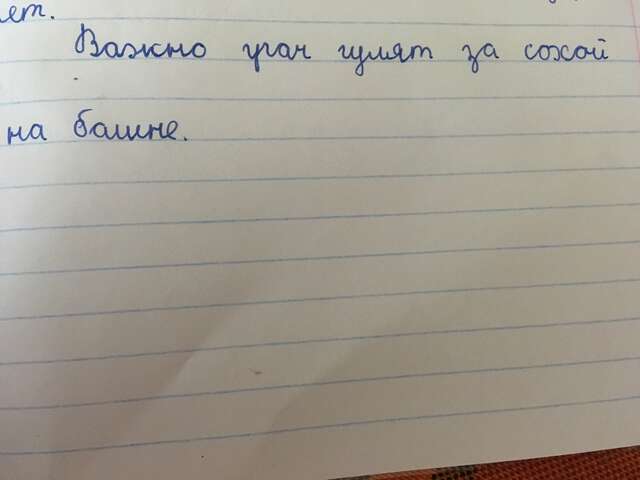 ет.
Важно грач гулят за сохой
на башне.